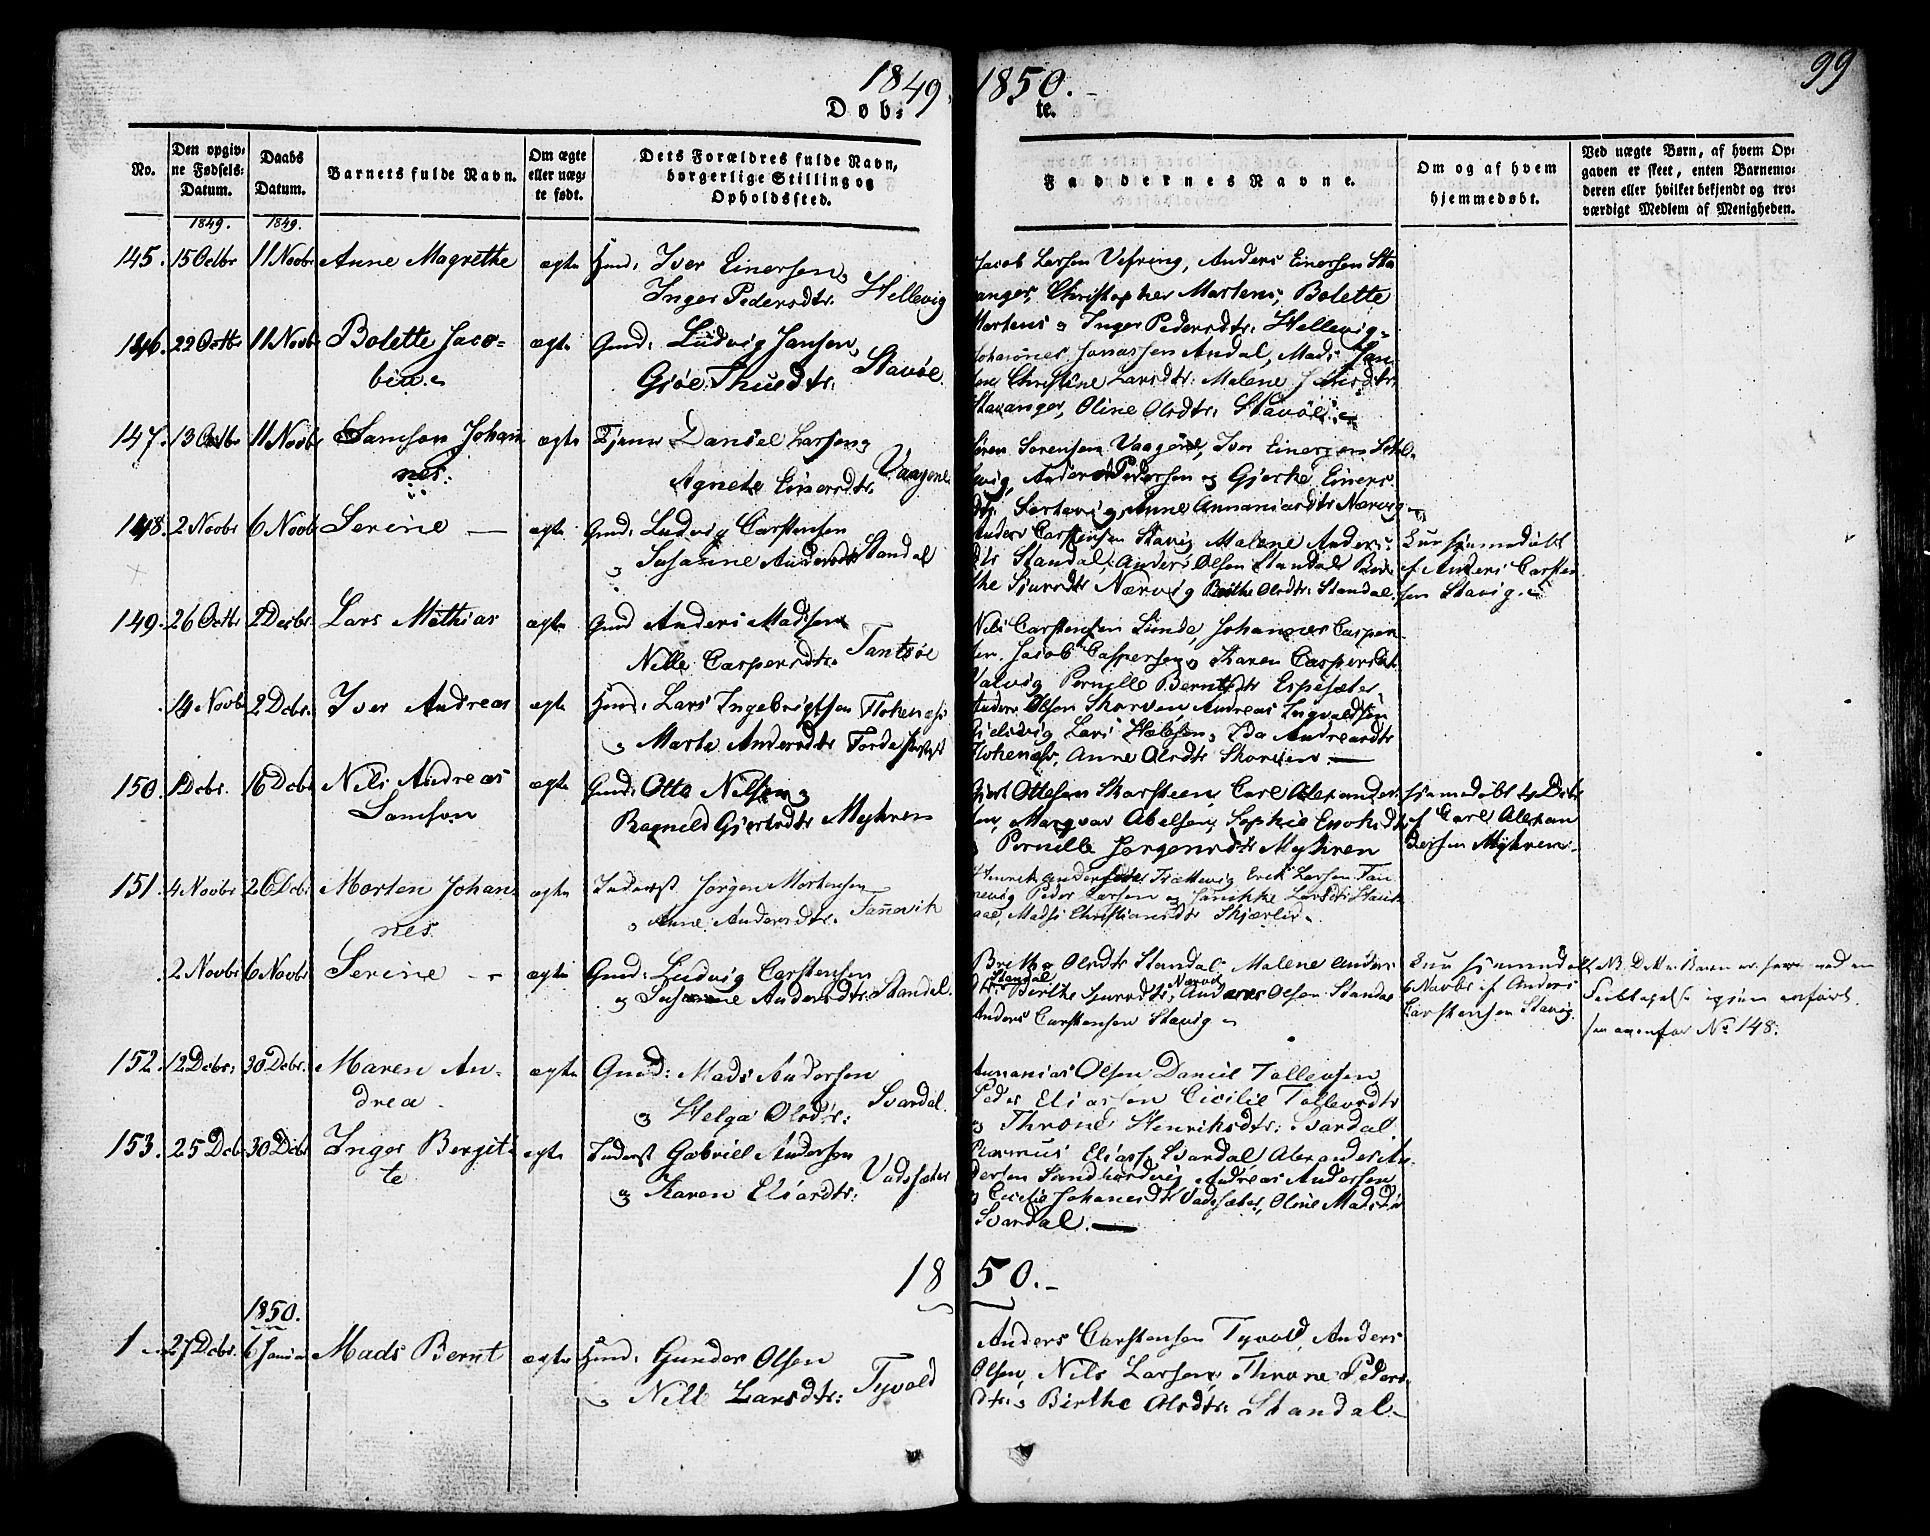 1849. 1850. 99
Døbte.
No.
Den opgivne Fødsels-Datum.
Daabs Datum.
Barnets fulde Navn.
Om ægte eller uægte født.
Dets Forældres fulde Navn, borgerlige Stilling og Opholdssted.
Faddernes Navne.
Om og af hvem hjemmedøbt.
Ved uægte Børn, af hvem Opgaven er skeet, enten Barnemoderen eller hvilket bekjendt og troværdigt Medlem af Menigheden.
1849. 1849.
145. 15 Octbr 11 Novbr Anne Magrethe ægte Huusd: Iver Einersen
Inger Pedersdtr. Hellevig
Jacob Larsen Vefring, Anders Einersen Sta
anger, Christopher Martens, Bolette
Martens o Inger Pedersdtr: Hellevig
146. 22 Octbr 11 Novbr Bolette Jaco-
bin ægte Gmd: Ludvig Jansen
Gjøe Thuedtr. Stavøe.
Johannes Jonassen Andal, Mads Jan
sen Christine Larsdtr: Malene
Stavanger, Oline Olsdtr: Stavøe
147. 13 Octbr 11 Novbr Samson Johan
nes. ægte Tjener Daniel Larsen
Agnete Einersdtr. Vaagene
Søren Sørensen Vaagene, Iver Einersen Hel-
vig, Anders Pedersen og Gjerke Einers
dtr. Anne Annaniasdtr Nærvig
148. 2 Novbr 6 Novbr Serine — ægte Gmd: Ludvig Carstensen
o Susanne Andersdtr Standal
Anders Carstensen Stavig Malene Anders
dtr Standal, Anders Olsen Standal Bir
the Sjursdtr Nærvig Birthe Olsdtr: Standal.
Er hjemmedøbt
af Anders Carsten
sen Stavig.
149. 26 Octbr 2 Decbr. Lars Mathias ægte Gmd Anders Madsen
Nille Caspersdtr. Tantsøe
Nils Carstensen Lunde, Johannes Casper
sen. Jacob Caspersen o Karen Caspersdtr
Valvig Pernille Berntsdtr Espesæter
14 Novbr 2 Dcbr. Iver Andreas ægte Huusd: Lars Ingebrigtsen Flokenæs
o Marta Andersdtr Førde
Anders Olsen Skorven Andreas Ingvaldsen
Gjelsvig Lars Ida Andreasdtr
Flokenæs. Anne Olsdtr Skorven —
150. 1 Dcbr. 16 Dcbr Nils Andreas
Samson ægte Gmd: Otto Nilsen o
Ragnild Gjertsdtr Myhren
Gjert Ottesen Skarsteen, Carl Alexander
sen, Margvar Abelsen, Sophie Enoksdtr
o Pernille Jørgensdtr Myhren
hjemmedøbt 4 Dcbr
af Carl Alexan
dersen Myhren.
151. 4 Novbr 26 Dcbr Morten Johan
nes. ægte Inderst Jørgen Mortensen
o Anne Andersdtr. Tannevik
Henrik Andersen Trættevig Erik Larsen Tan
nevig Peder Larsen og Jannikke Larsdtr
Madsi Christiansdtr Skjærlie.
2 Novbr 6 Novbr Serine — ægte Gmd: Ludvig Carstensen
og Susanne Andersdtr. Standal.
Brithe Olsdtr Standal, Malene Anders
dtr: Standal Birthe Sjursdtr, Nærvig Anders Olsen Standal
Anders Carstensen Stavig
Er hjemmedøbt
6 Novbr af Anders
Carstensen Stavig.
NB. Dette Barn er her ved en
Feiltagelse igjen anført.
see ovenfor No 148.
152. 12 Dcbr: 30 Dcbr. Maren An-
drea. ægte Gmd: Mads Andersen
o Helga Olsdtr: Svardal.
Annanias Olsen Daniel Tollevsen
Peder Eliassen Cicilie Tollevsdtr
o Throne Henriksdtr: Svardal
153. 25 Dcbr 30 Dcbr Inger Bergit-
te ægte Inderst Gabriel Andersen
og Karen Eliasdtr: Vadsæter
Rasmus Eliass Svardal Alexander An
dersen Sandhordvig Andreas Andersen
o Cicilie Johanesdtr Vadsæter, Oline Madsdtr
Svardal. —
1850.
1850.
1 27 Dcbr. 6 Januar Mads Bernt ægte Huusd: Gunder Olsen
o Nille Larsdtr: Tyvold
Anders Carstensen Tyvold, Anders
Olsen, Nils Larsen, Throne Peders
dtr. o Birthe Olsdtr: Standal.